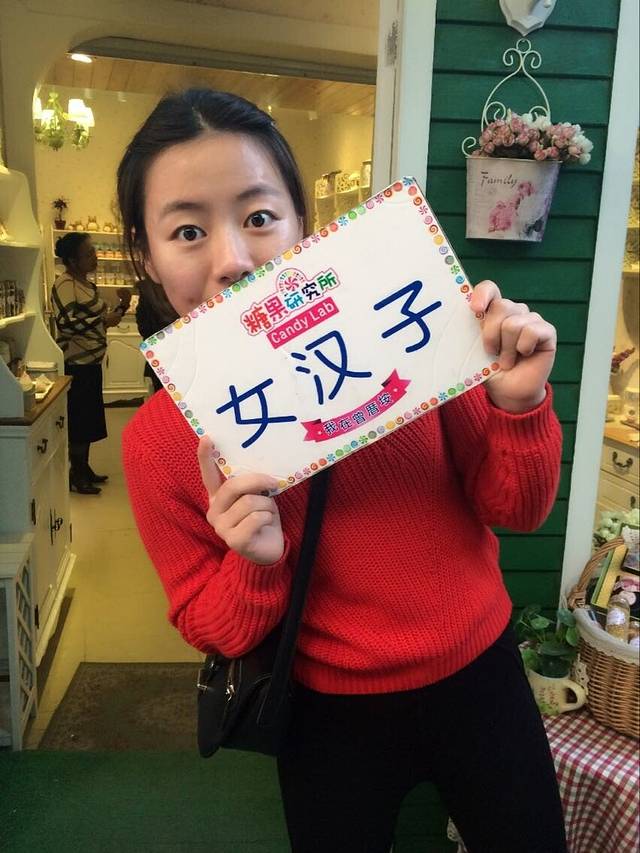 Family
糖果研究所
Candy Lab
女汉子
我在曾厝垵